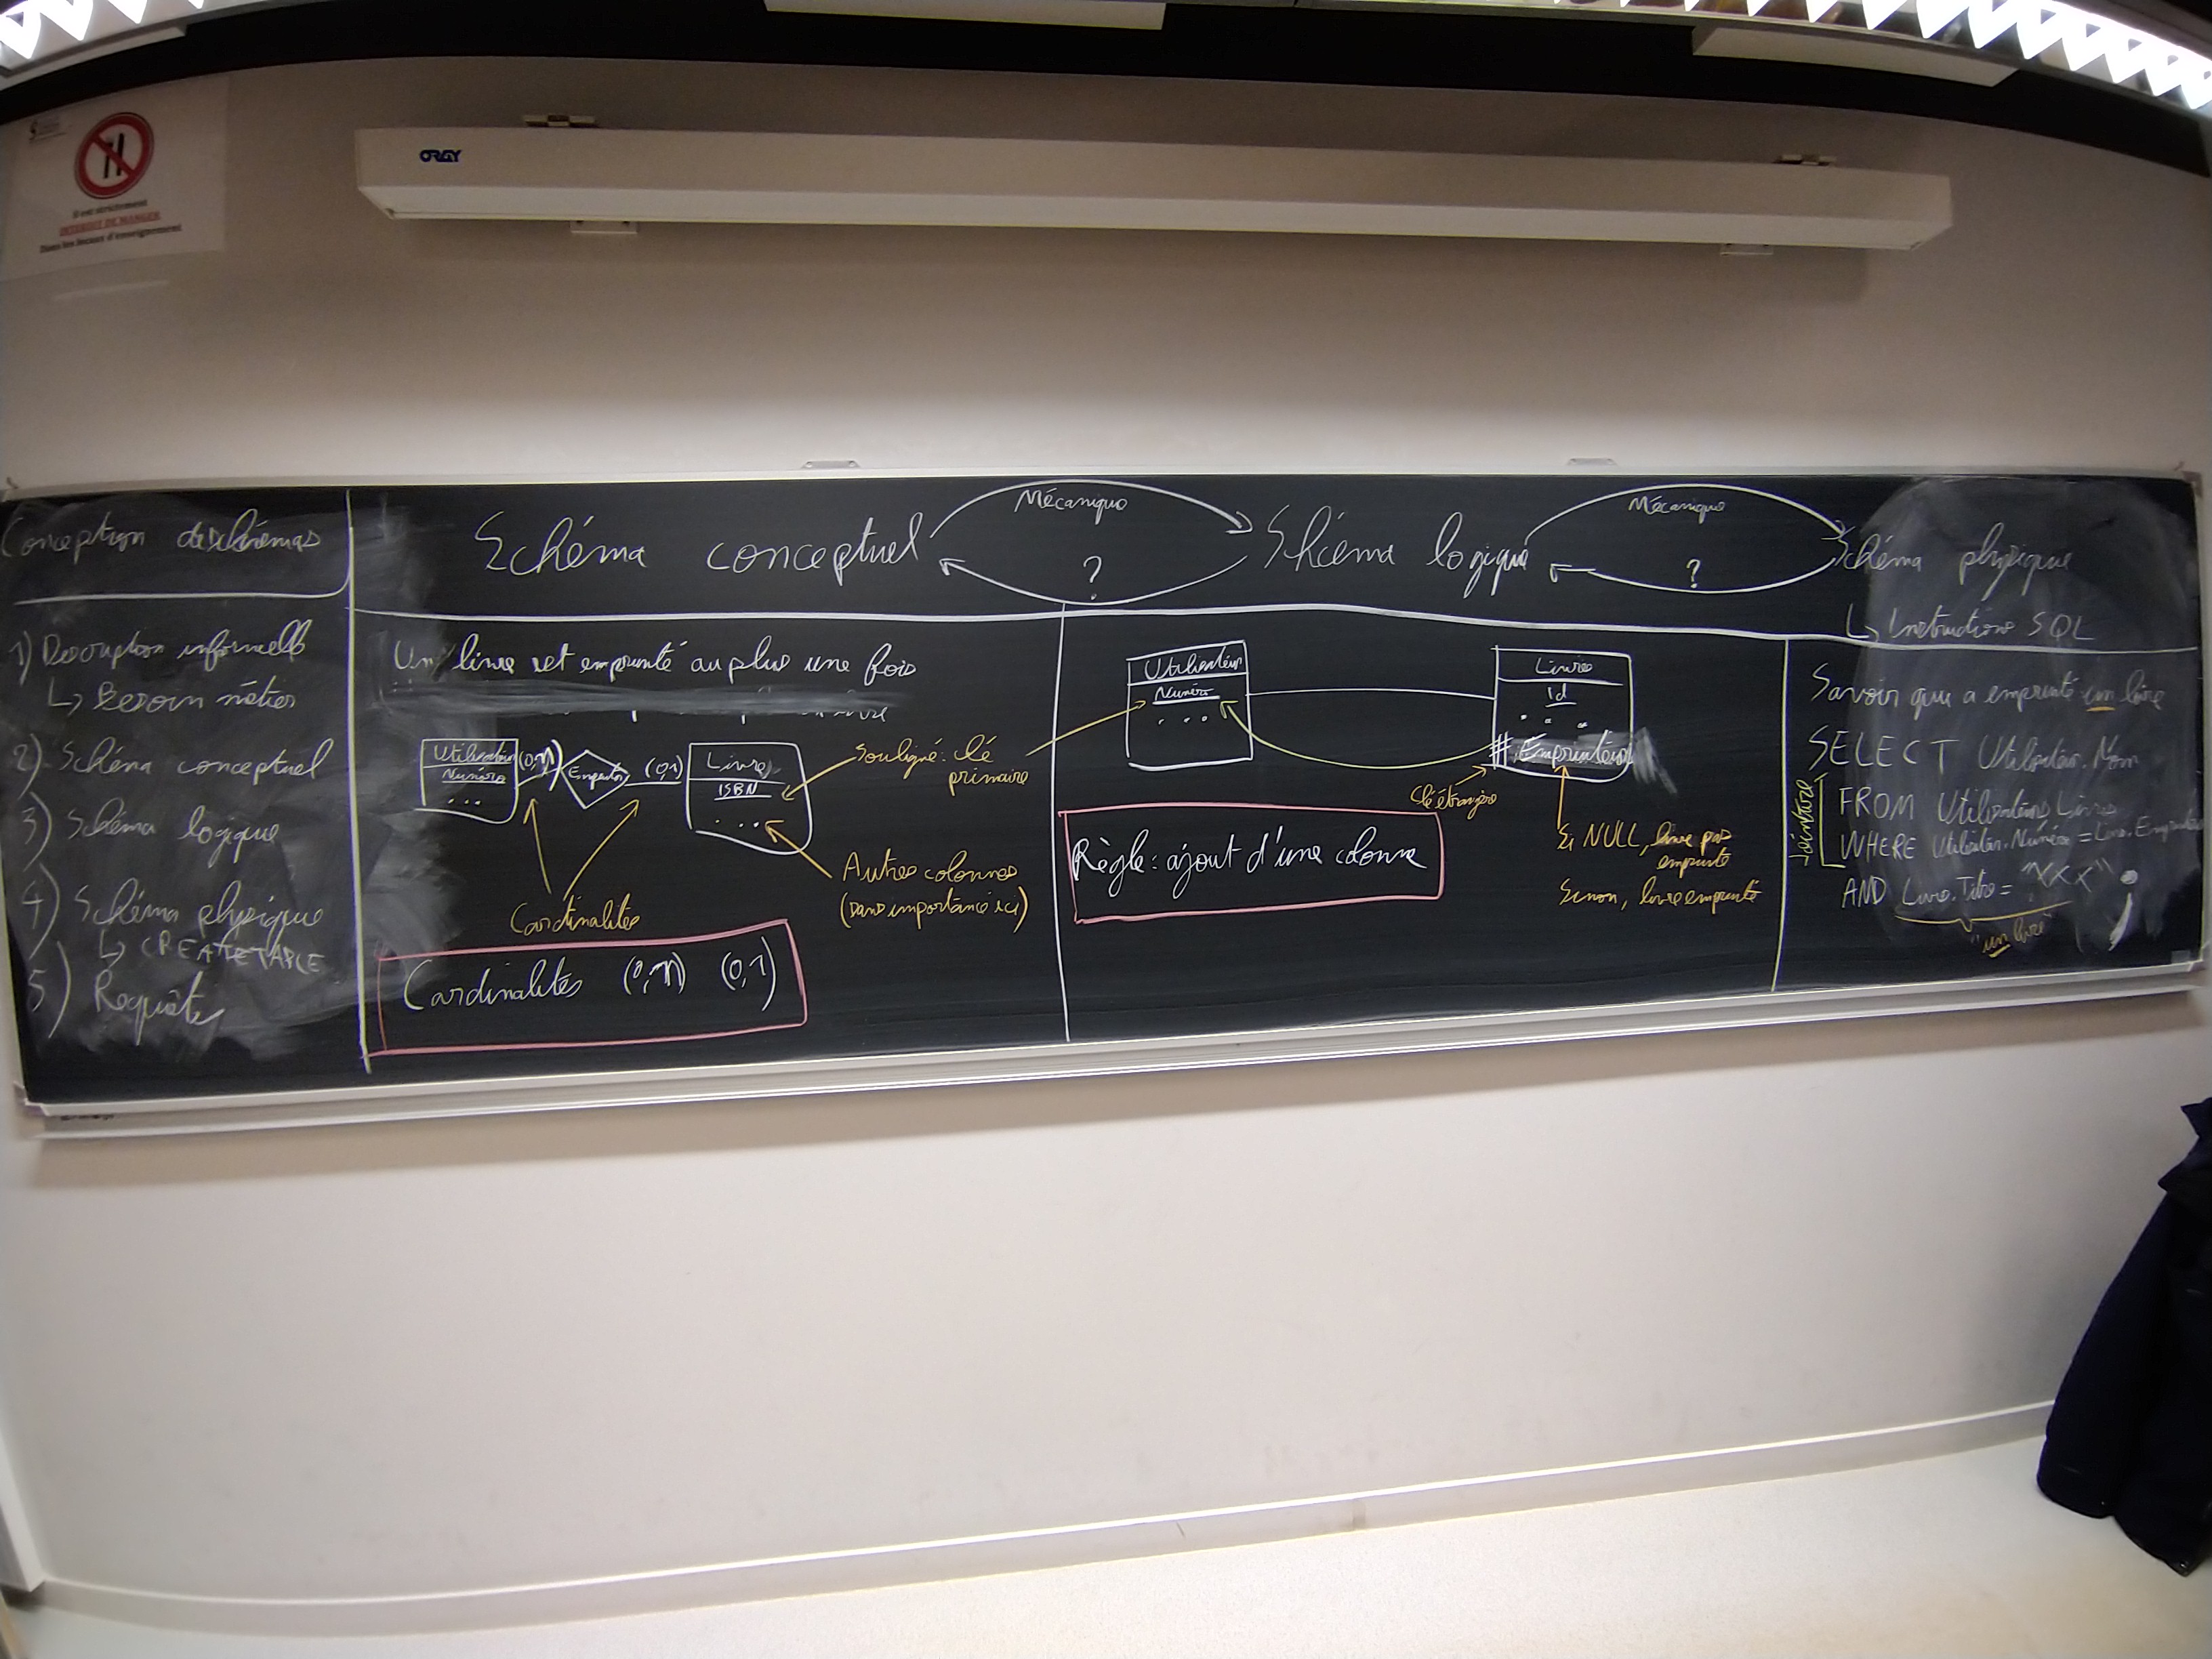 ORAY
Il est strictement
INTERDIT DE MANGER
Dans les locaux d'enseignement
Conception de schémas
1) Description informelle
↳ Besoin métier
2) Schéma conceptuel
3) Schéma logique
4) Schéma physique
↳ CREATE TABLE
5) Requête
Schéma conceptuel
Mécanique
?
Schéma logique
Mécanique
?
Schéma physique
↳ Instructions SQL
Un livre est emprunté au plus une fois
Utilisateur
Numéro
...
(0,n)
Emprunter
(0,1)
Livre
ISBN
...
Souligné: clé
primaire
Autres colonnes
(sans importance ici)
Cardinalités
Cardinalités (0,n) (0,1)
Utilisateur
Numéro
...
Livres
Id
...
# Emprunteur
Clé étrangère
Si NULL, livre pas
emprunté
Sinon, livre emprunté
Règle: ajout d'une colonne
Savoir qui a emprunté un livre
SELECT Utilisateur.Nom
FROM Utilisateurs Livres
WHERE Utilisateur.Numéro = Livre.Emprunteur
AND Livre.Titre = "XXX";
Jointure
"un livre"